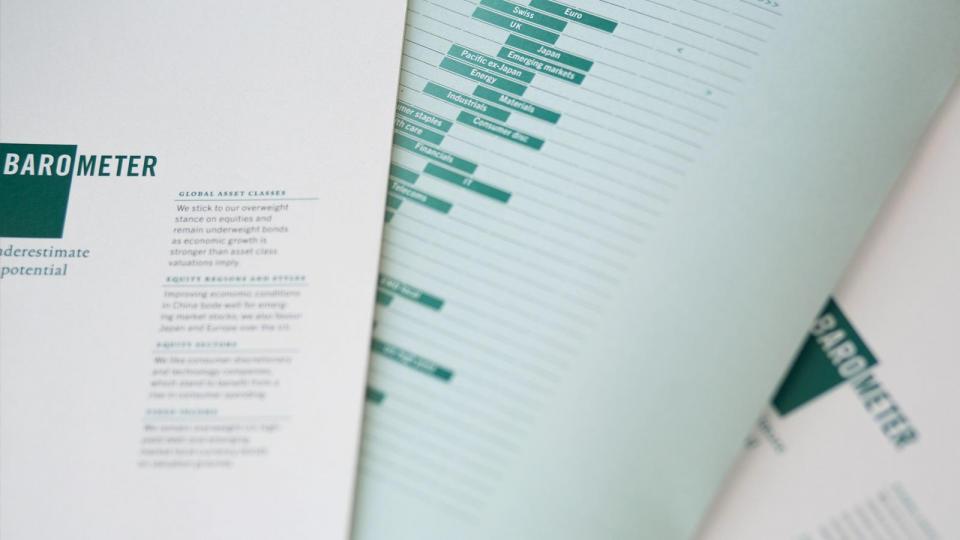 BAROMETER
nderestimate
potential
GLOBAL ASSET CLASSES
We stick to our overweight
stance on equities and
remain underweight bonds
as economic growth is
stronger than asset class
valuations imply.
EQUITY REGIONS AND STYLES
Improving economic conditions
in China bode well for emerg-
ing market stocks; we also favour
Japan and Europe over the US.
EQUITY SECTORS
We like consumer discretionary
and technology companies,
which stand to benefit from a
rise in consumer spending.
FIXED INCOME
We remain overweight US high-
yield debt and emerging
market local currency bonds
on valuation grounds.
Euro
Swiss
UK
Japan
Emerging markets
Pacific ex-Japan
Energy
Materials
Industrials
Consumer disc
umer staples
lth care
Financials
IT
Telecoms
BAROMETER